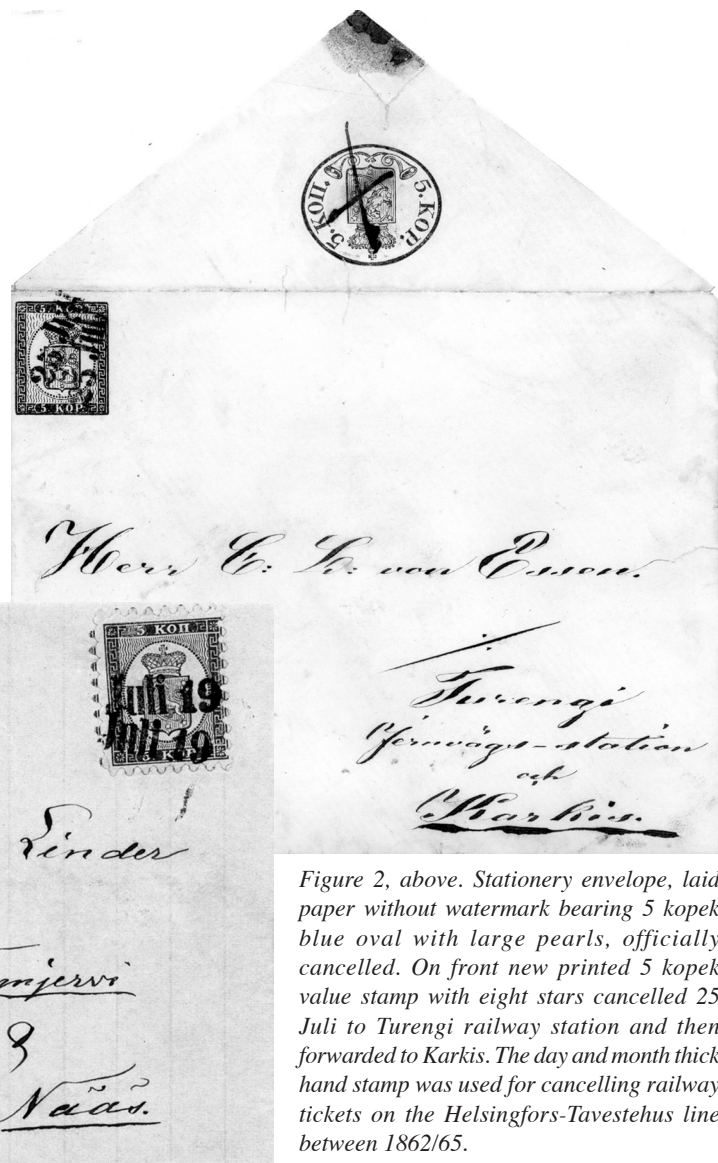 5. КОП. 5. KOP.
5. KOP.
25 Juli
5. KOP.
Herr C: L: von Essen.
Turengi
Jernvägs-station
och
Karkis.
5 КОП
Juli 19
Juli 19
5 KOP
Linder
Näås.
Figure 2, above. Stationery envelope, laid
paper without watermark bearing 5 kopek
blue oval with large pearls, officially
cancelled. On front new printed 5 kopek
value stamp with eight stars cancelled 25
Juli to Turengi railway station and then
forwarded to Karkis. The day and month thick
hand stamp was used for cancelling railway
tickets on the Helsingfors-Tavestehus line
between 1862/65.